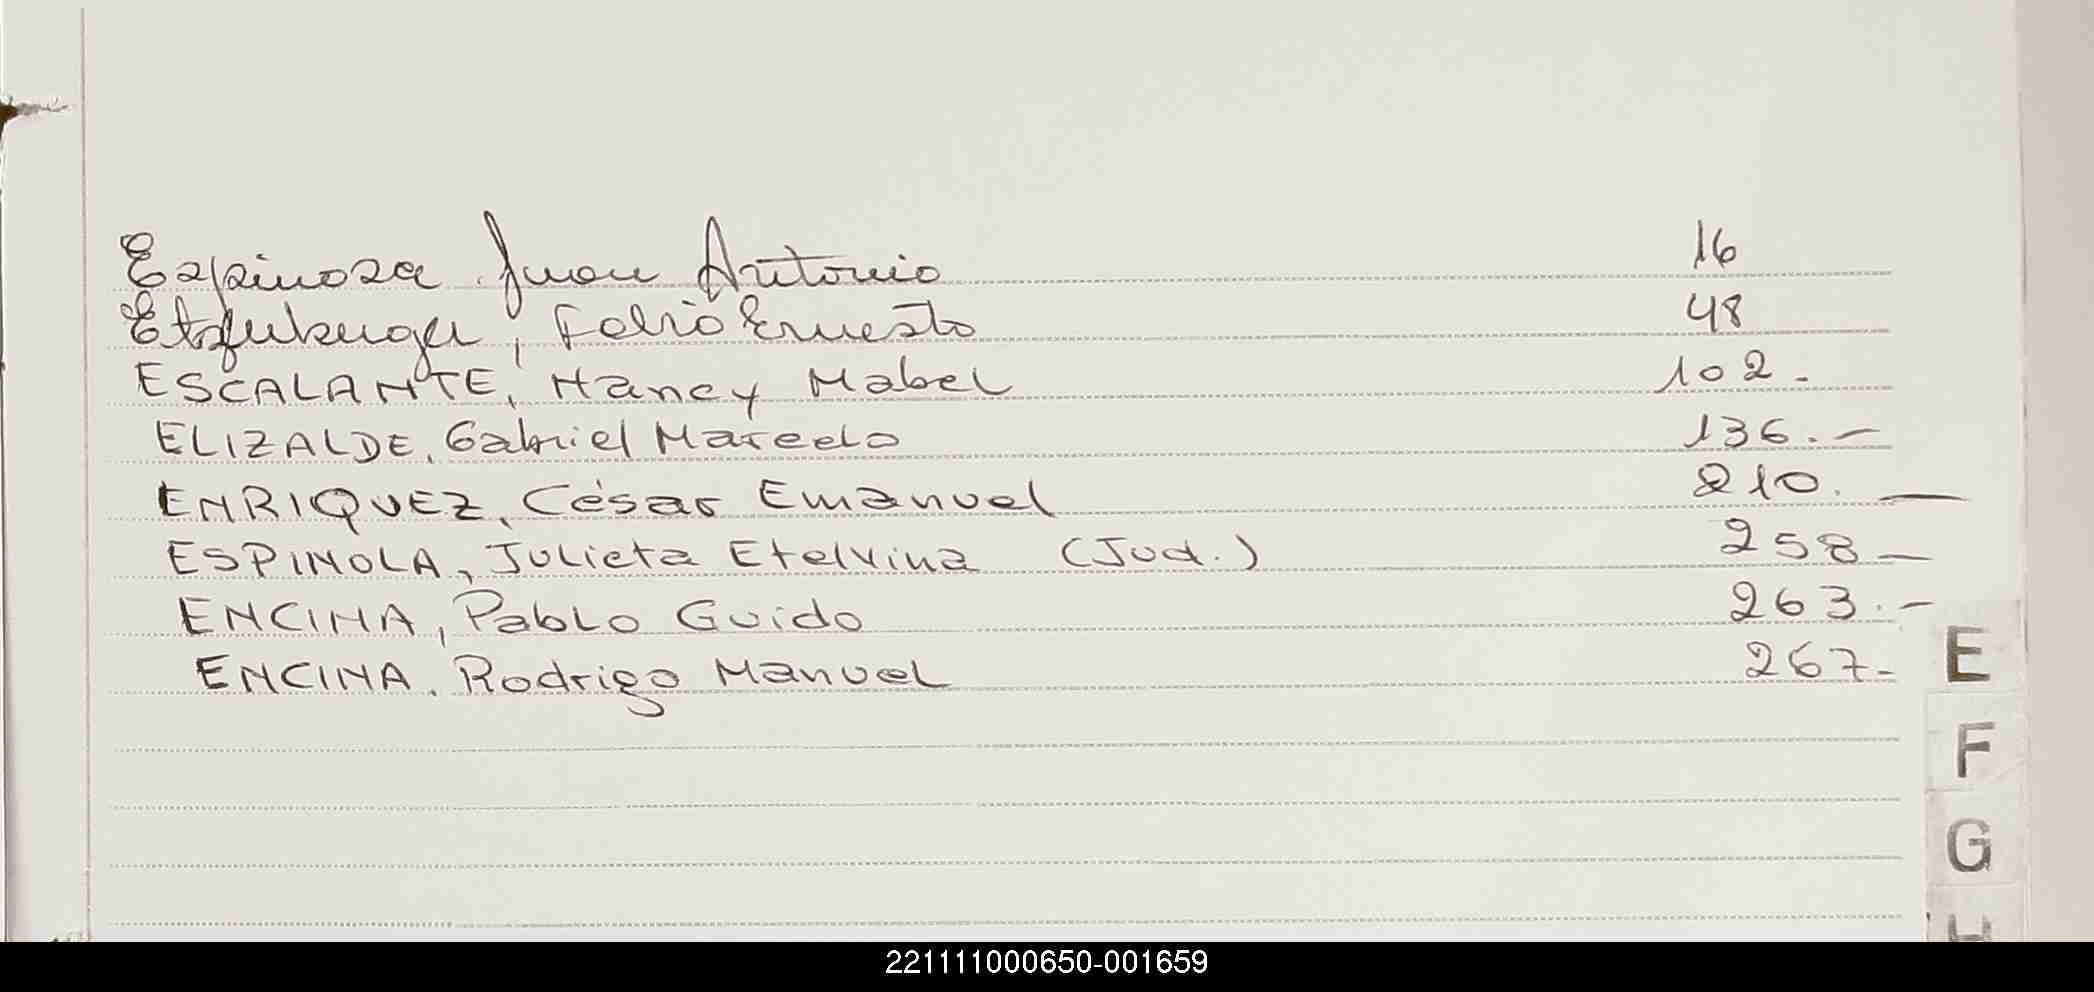 Espinoza Juan Antonio 16
Fabio Ernesto 48
ESCALANTE, Nancy Mabel 102.
ELIZALDE, Gabriel Marcelo 136.-
ENRIQUEZ, César Emanuel 210. -
ESPINOLA, Julieta Etelvina (Jud.) 258 -
ENCINA, Pablo Guido 263.-
ENCINA, Rodrigo Manuel 267-
E
F
G
H
221111000650-001659